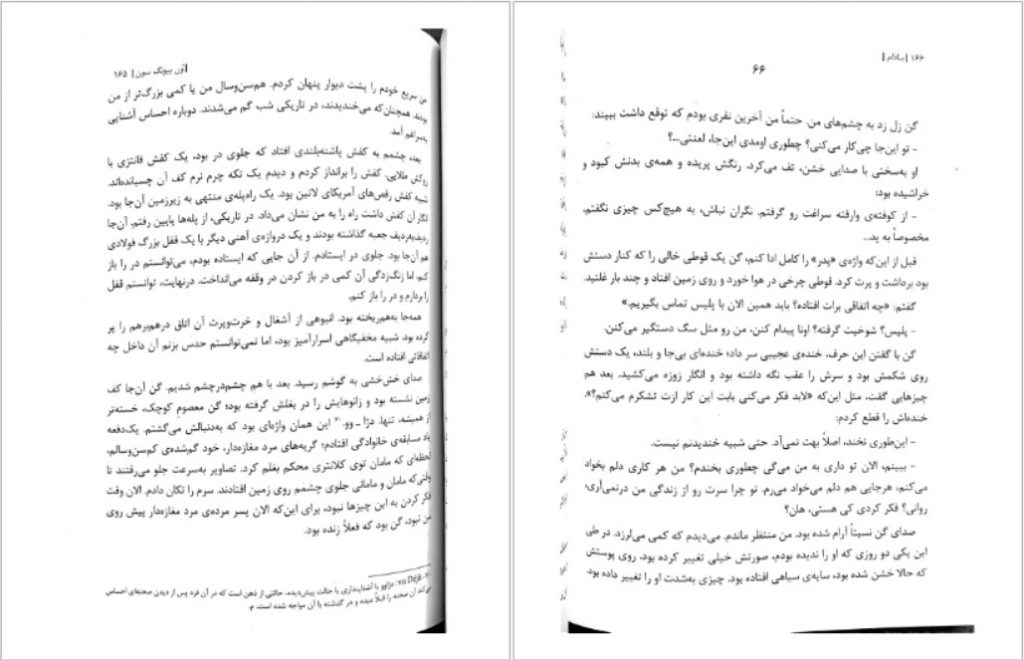 اُون پیونگ سون | ۱۶۵
من سریع خودم را پشت دیوار پنهان کردم. هم‌سن‌وسال من یا کمی بزرگ‌تر از من
بودند. همچنان‌که می‌خندیدند، در تاریکی شب گم می‌شدند. دوباره احساس آشنایی
به‌سراغم آمد.
بعد، چشمم به کفش پاشنه‌بلندی افتاد که جلوی در بود، یک کفش فانتزی با
روکش طلایی. کفش را برانداز کردم و دیدم یک تکه چرم نرم کف آن چسبانده‌اند.
شبیه کفش رقص‌های آمریکای لاتین بود. یک راه‌پله‌ی منتهی به زیرزمین آن‌جا بود.
انگار آن کفش داشت راه را به من نشان می‌داد. در تاریکی، از پله‌ها پایین رفتم. آن‌جا
ردیف‌به‌ردیف جعبه گذاشته بودند و یک دروازه‌ی آهنی دیگر با یک قفل بزرگ فولادی
هم آن‌جا بود. جلوی در ایستادم. از آن جایی که ایستاده بودم، می‌توانستم در را باز
کنم، اما زنگ‌زدگی آن کمی در باز کردن در وقفه می‌انداخت. درنهایت، توانستم قفل
را بردارم و در را باز کنم.
همه‌جا به‌هم‌ریخته بود. انبوهی از آشغال و خرت‌وپرت آن اتاق درهم‌برهم را پر
کرده بود. شبیه مخفیگاهی اسرارآمیز بود، اما نمی‌توانستم حدس بزنم آن داخل چه
اتفاقاتی افتاده است.
صدای خش‌خشی به گوشم رسید. بعد با هم چشم‌درچشم شدیم. گن آن‌جا کف
زمین نشسته بود و زانوهایش را در بغلش گرفته بود؛ گن معصوم کوچک، خسته‌تر
از همیشه، تنها. دژا ـ وو.۲۰ این همان واژه‌ای بود که به‌دنبالش می‌گشتم. یک‌دفعه
یاد مسابقه‌ی خانوادگی افتادم؛ گریه‌های مرد مغازه‌دار، خود گم‌شده‌ی کم‌سن‌وسالم،
لحظه‌ای که مامان توی کلانتری محکم بغلم کرد. تصاویر به‌سرعت جلو می‌رفتند تا
وقتی‌که مامان و مامانی جلوی چشمم روی زمین افتادند. سرم را تکان دادم. الان وقت
فکر کردن به این چیزها نبود، برای این‌که الان پسر مرده‌ی مرد مغازه‌دار پیش روی
من نبود، گن بود که فعلاً زنده بود.
vu Déjà: دژاوو یا آشناپنداری یا حالت پیش‌دیده، حالتی از ذهن است که در آن فرد پس از دیدن صحنه‌ای احساس
می‌کند آن صحنه را قبلاً دیده و در گذشته با آن مواجه شده است. م.
۱۶۶ | بادام |
۶۶
گن زل زد به چشم‌های من. حتماً من آخرین نفری بودم که توقع داشت ببیند:
- تو این‌جا چی‌کار می‌کنی؟ چطوری اومدی این‌جا، لعنتی...؟
او به‌سختی با صدایی خشن، تف می‌کرد. رنگش پریده و همه‌ی بدنش کبود و
خراشیده بود:
- از کوفته‌ی وارفته سراغت رو گرفتم. نگران نباش، به هیچ‌کس چیزی نگفتم،
مخصوصاً به پد...
قبل از این‌که واژه‌ی «پدر» را کامل ادا کنم، گن یک قوطی خالی را که کنار دستش
بود برداشت و پرت کرد. قوطی چرخی در هوا خورد و روی زمین افتاد و چند بار غلتید.
گفتم: «چه اتفاقی برات افتاده؟ باید همین الان با پلیس تماس بگیریم.»
- پلیس؟ شوخیت گرفته؟ اونا پیدام کنن، من رو مثل سگ دستگیر می‌کنن.
گن با گفتن این حرف، خنده‌ی عجیبی سر داد؛ خنده‌ای بی‌جا و بلند، یک دستش
روی شکمش بود و سرش را عقب نگه داشته بود و انگار زوزه می‌کشید. بعد هم
چیزهایی گفت، مثل این‌که «لابد فکر می‌کنی بابت این کار ازت تشکرم می‌کنم؟».
خنده‌اش را قطع کردم:
- این‌طوری نخند، اصلاً بهت نمی‌آد. حتی شبیه خندیدنم نیست.
- ببینم، الان تو داری به من می‌گی چطوری بخندم؟ من هر کاری دلم بخواد
می‌کنم، هرجایی هم دلم می‌خواد می‌رم. تو چرا سرت رو از زندگی من درنمی‌آری،
روانی؟ فکر کردی کی هستی، هان؟
صدای گن نسبتاً آرام شده بود. من منتظر ماندم. می‌دیدم که کمی می‌لرزد. در طی
این یکی دو روزی که او را ندیده بودم، صورتش خیلی تغییر کرده بود. روی پوستش
که حالا خشن شده بود، سایه‌ی سیاهی افتاده بود. چیزی به‌شدت او را تغییر داده بود.